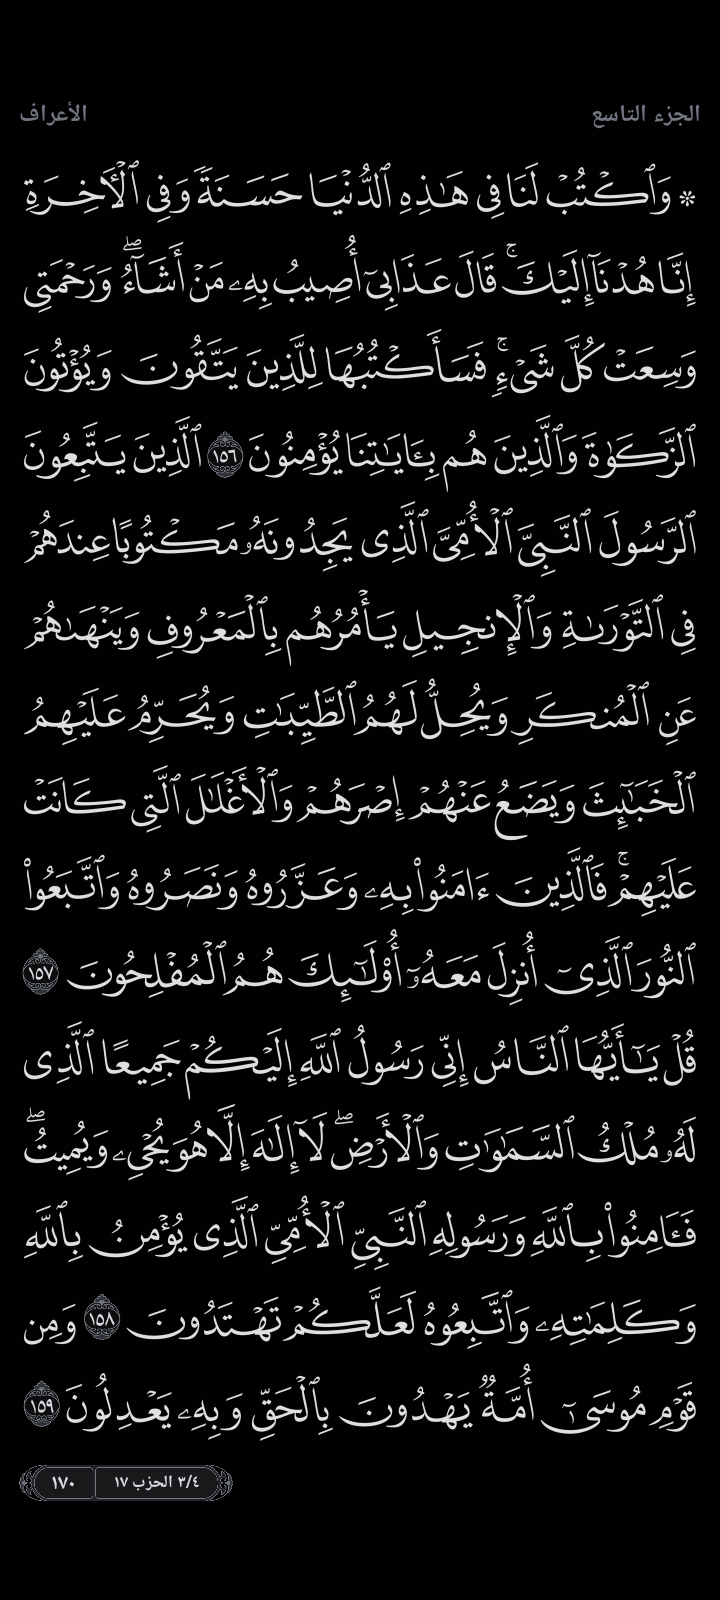 الجزء التاسع
الأعراف
۞ وَٱكۡتُبۡ لَنَا فِي هَٰذِهِ ٱلدُّنۡيَا حَسَنَةٗ وَفِي ٱلۡأٓخِرَةِ
إِنَّا هُدۡنَآ إِلَيۡكَۚ قَالَ عَذَابِيٓ أُصِيبُ بِهِۦ مَنۡ أَشَآءُۖ وَرَحۡمَتِي
وَسِعَتۡ كُلَّ شَيۡءٖۚ فَسَأَكۡتُبُهَا لِلَّذِينَ يَتَّقُونَ وَيُؤۡتُونَ
ٱلزَّكَوٰةَ وَٱلَّذِينَ هُم بِـَٔايَٰتِنَا يُؤۡمِنُونَ ١٥٦ ٱلَّذِينَ يَتَّبِعُونَ
ٱلرَّسُولَ ٱلنَّبِيَّ ٱلۡأُمِّيَّ ٱلَّذِي يَجِدُونَهُۥ مَكۡتُوبًا عِندَهُمۡ
فِي ٱلتَّوۡرَىٰةِ وَٱلۡإِنجِيلِ يَأۡمُرُهُم بِٱلۡمَعۡرُوفِ وَيَنۡهَىٰهُمۡ
عَنِ ٱلۡمُنكَرِ وَيُحِلُّ لَهُمُ ٱلطَّيِّبَٰتِ وَيُحَرِّمُ عَلَيۡهِمُ
ٱلۡخَبَٰٓئِثَ وَيَضَعُ عَنۡهُمۡ إِصۡرَهُمۡ وَٱلۡأَغۡلَٰلَ ٱلَّتِي كَانَتۡ
عَلَيۡهِمۡۚ فَٱلَّذِينَ ءَامَنُواْ بِهِۦ وَعَزَّرُوهُ وَنَصَرُوهُ وَٱتَّبَعُواْ
ٱلنُّورَ ٱلَّذِيٓ أُنزِلَ مَعَهُۥٓ أُوْلَٰٓئِكَ هُمُ ٱلۡمُفۡلِحُونَ ١٥٧
قُلۡ يَٰٓأَيُّهَا ٱلنَّاسُ إِنِّي رَسُولُ ٱللَّهِ إِلَيۡكُمۡ جَمِيعًا ٱلَّذِي
لَهُۥ مُلۡكُ ٱلسَّمَٰوَٰتِ وَٱلۡأَرۡضِۖ لَآ إِلَٰهَ إِلَّا هُوَ يُحۡيِۦ وَيُمِيتُۖ
فَـَٔامِنُواْ بِٱللَّهِ وَرَسُولِهِ ٱلنَّبِيِّ ٱلۡأُمِّيِّ ٱلَّذِي يُؤۡمِنُ بِٱللَّهِ
وَكَلِمَٰتِهِۦ وَٱتَّبِعُوهُ لَعَلَّكُمۡ تَهۡتَدُونَ ١٥٨ وَمِن
قَوۡمِ مُوسَىٰٓ أُمَّةٞ يَهۡدُونَ بِٱلۡحَقِّ وَبِهِۦ يَعۡدِلُونَ ١٥٩
٣/٤ الحزب ١٧
١٧٠